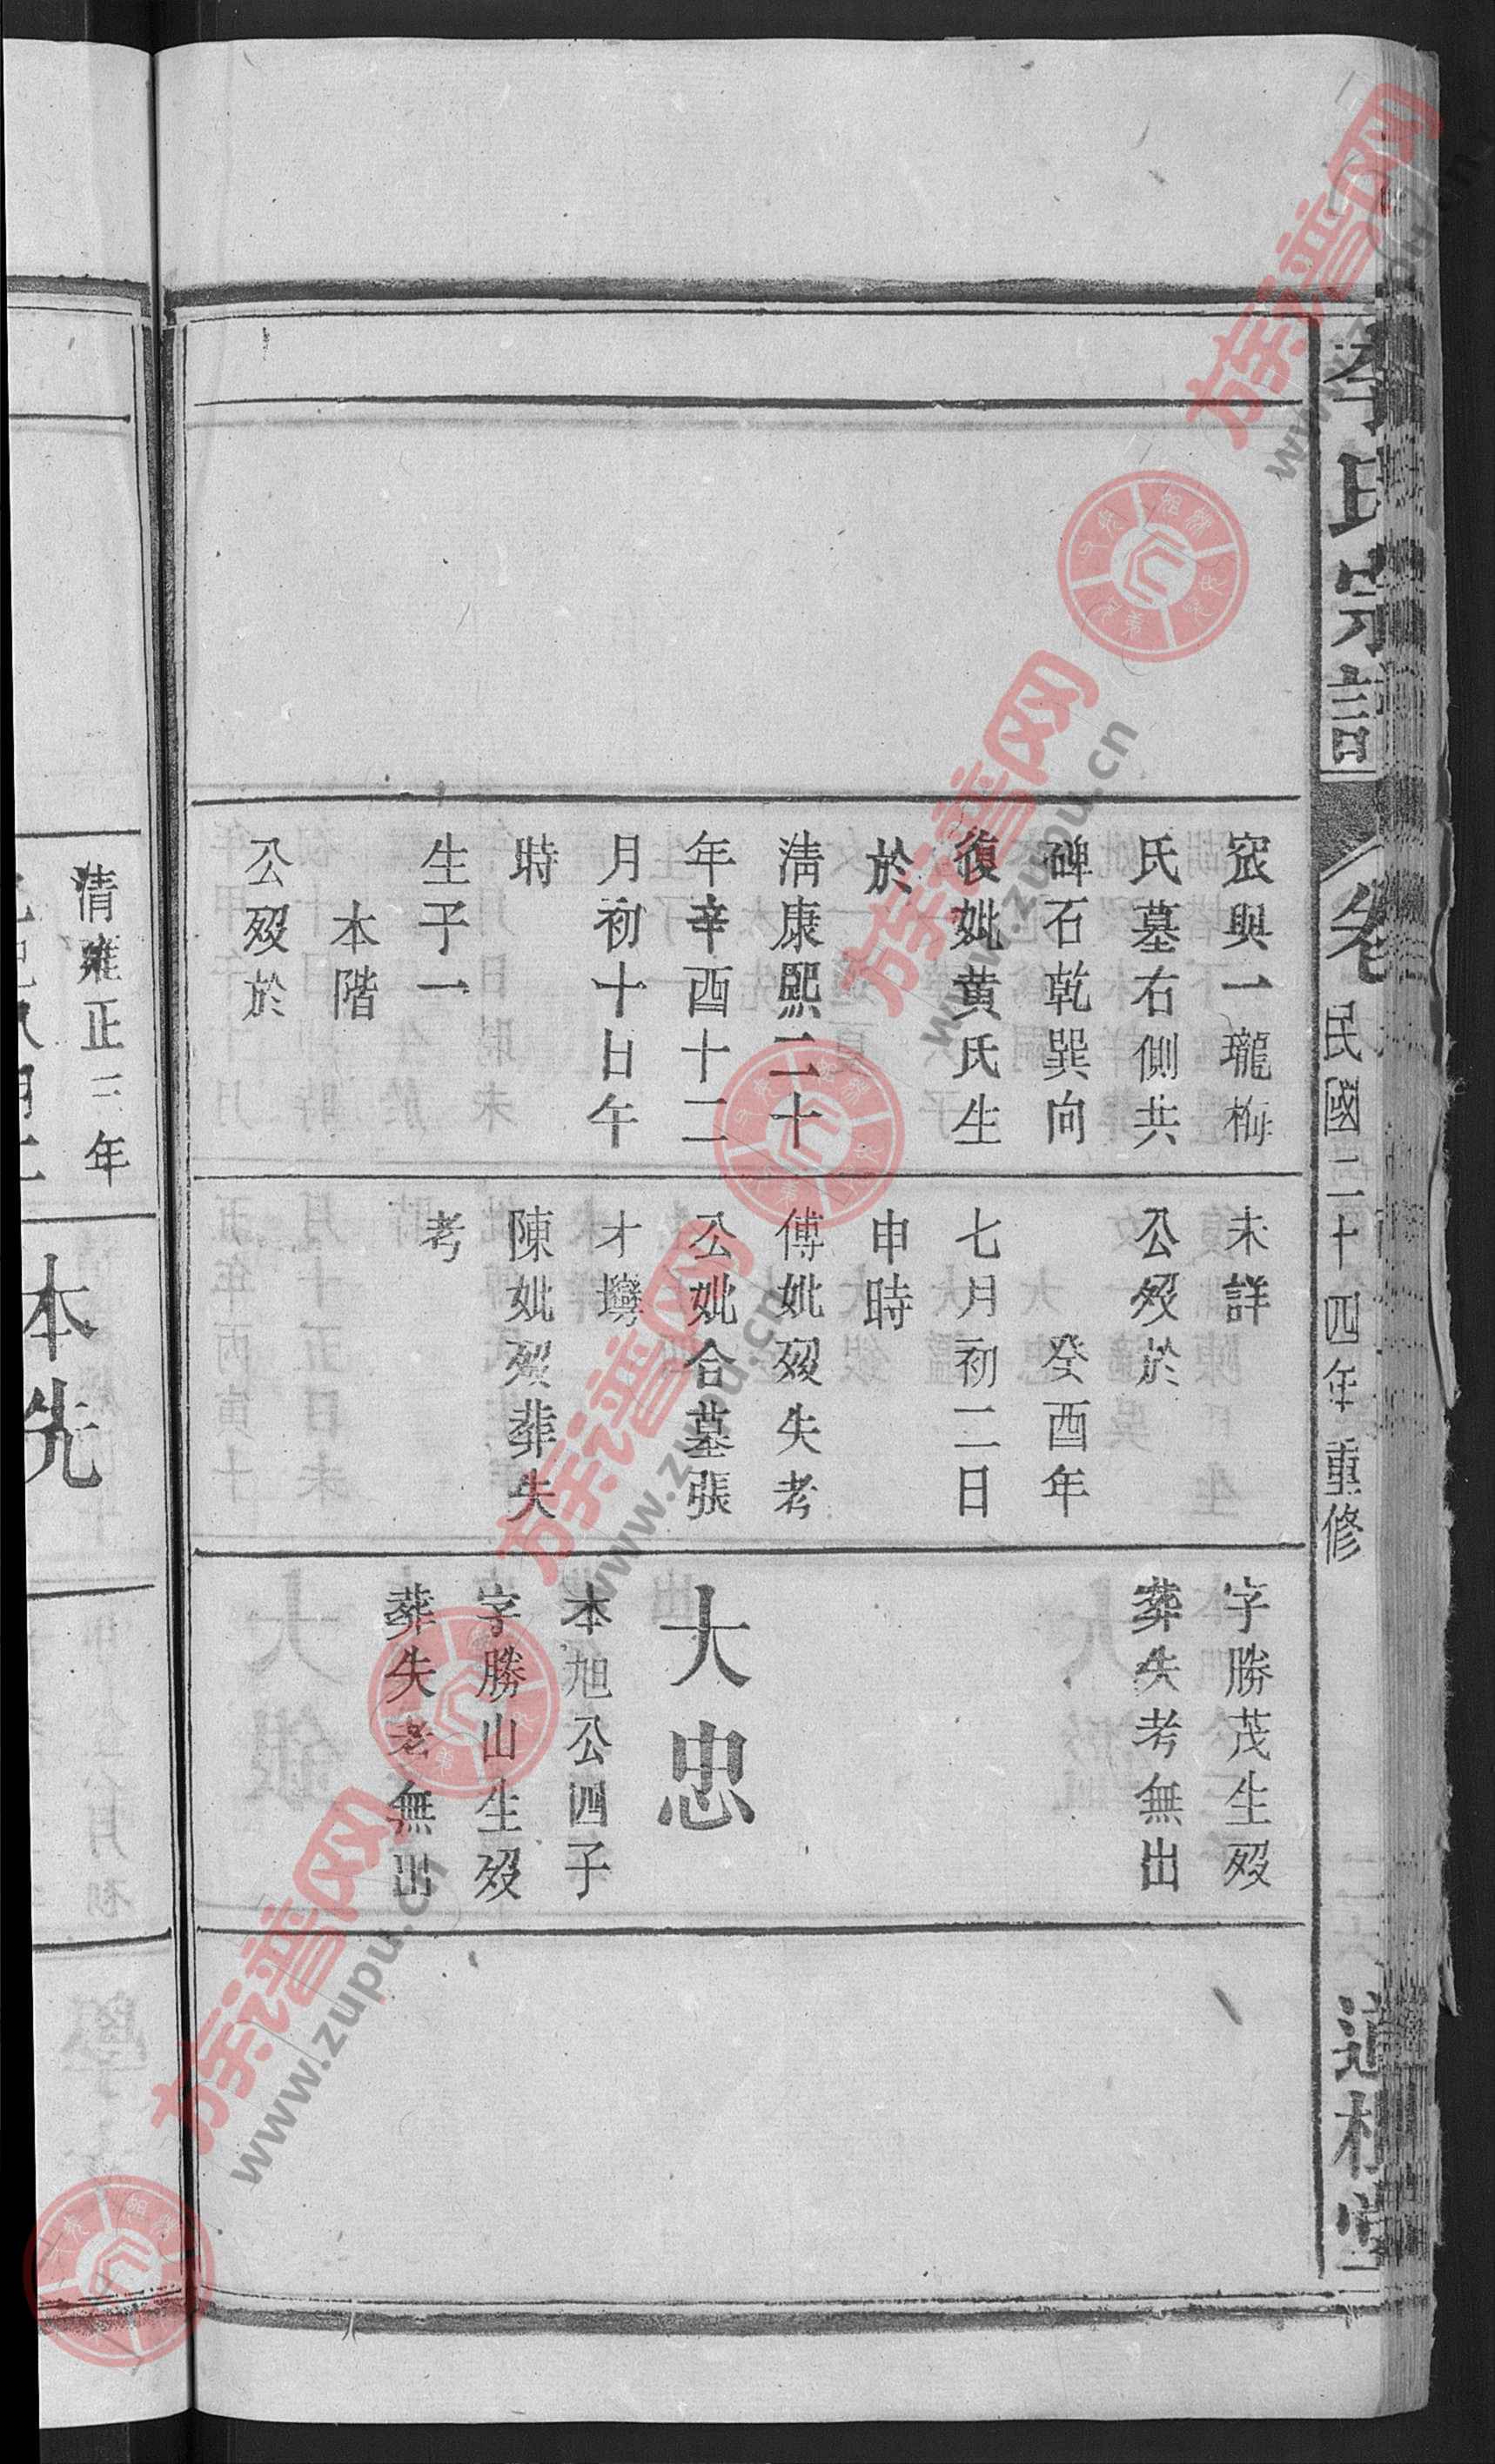 李氏宗譜
卷
民國二十四年重修
道
堂
窆與一瓏梅
氏墓右側共
碑石乾巽向
復妣黄氏生
於
清康熙二十
年辛酉十二
月初十日午
時
生子一
本階
公歿於
未詳
公歿於
癸酉年
七月初二日
申時
傅妣歿失考
公妣合墓張
才塆
陳妣歿葬失
考
字勝茂生歿
葬失考無出
大忠
本旭公四子
字勝山生歿
葬失考無出
清雍正三年
本先
族谱网
www.zupu.cn
族谱网
www.zupu.cn
族谱网
www.zupu.cn
族谱网
www.zupu.cn